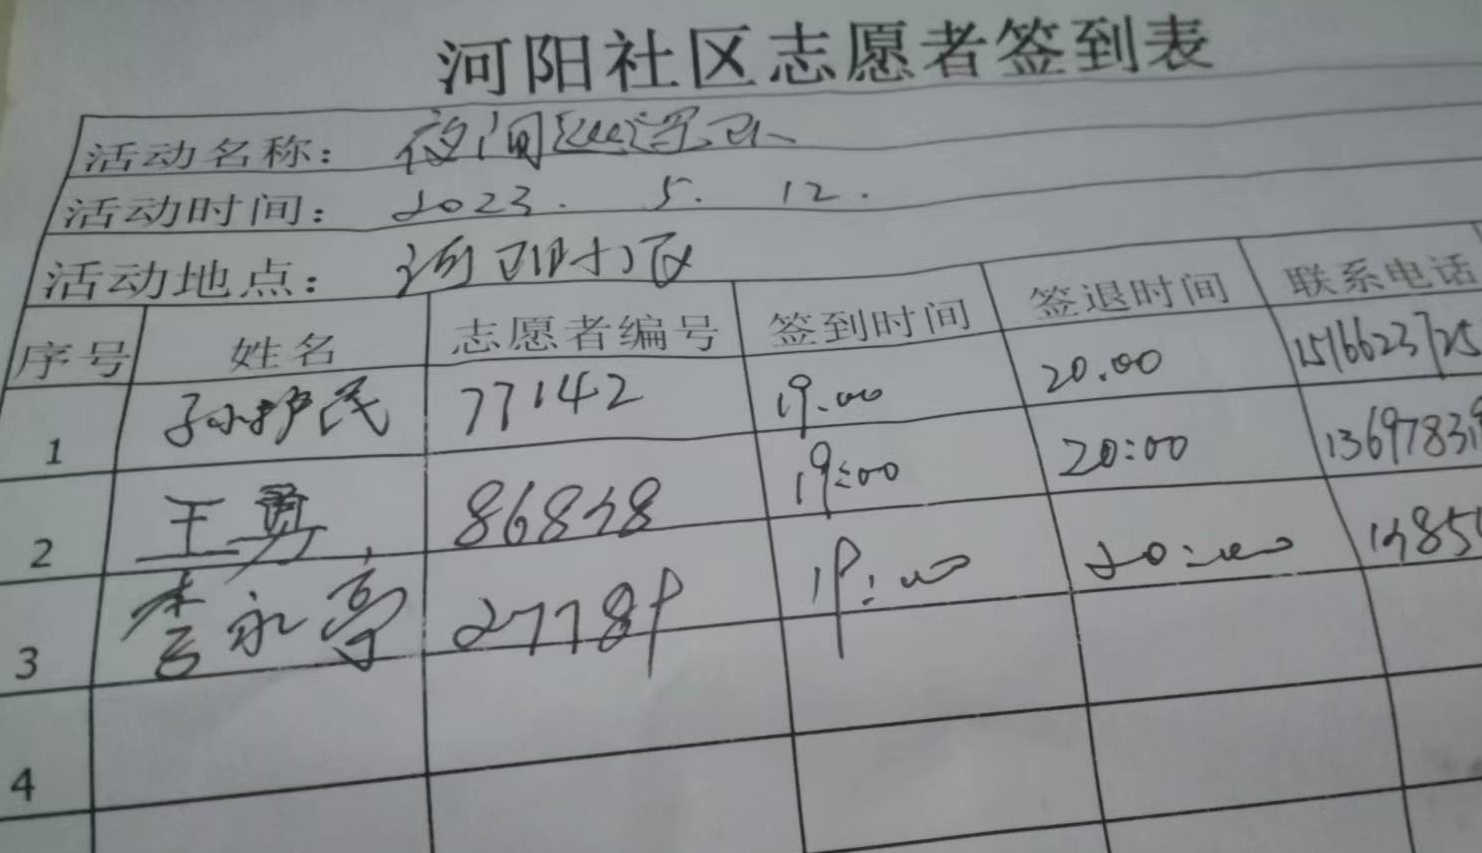 河阳社区志愿者签到表
活动名称: 夜间巡逻
活动时间: 2023. 5. 12.
活动地点: 河阳社区
序号 姓名 志愿者编号 签到时间 签退时间 联系电话
1 孙护民 77142 19.00 20.00 1516623725
2 王勇 86838 19:00 20:00 13697839
3 李永亭 27789 19:00 20:00 1385
4